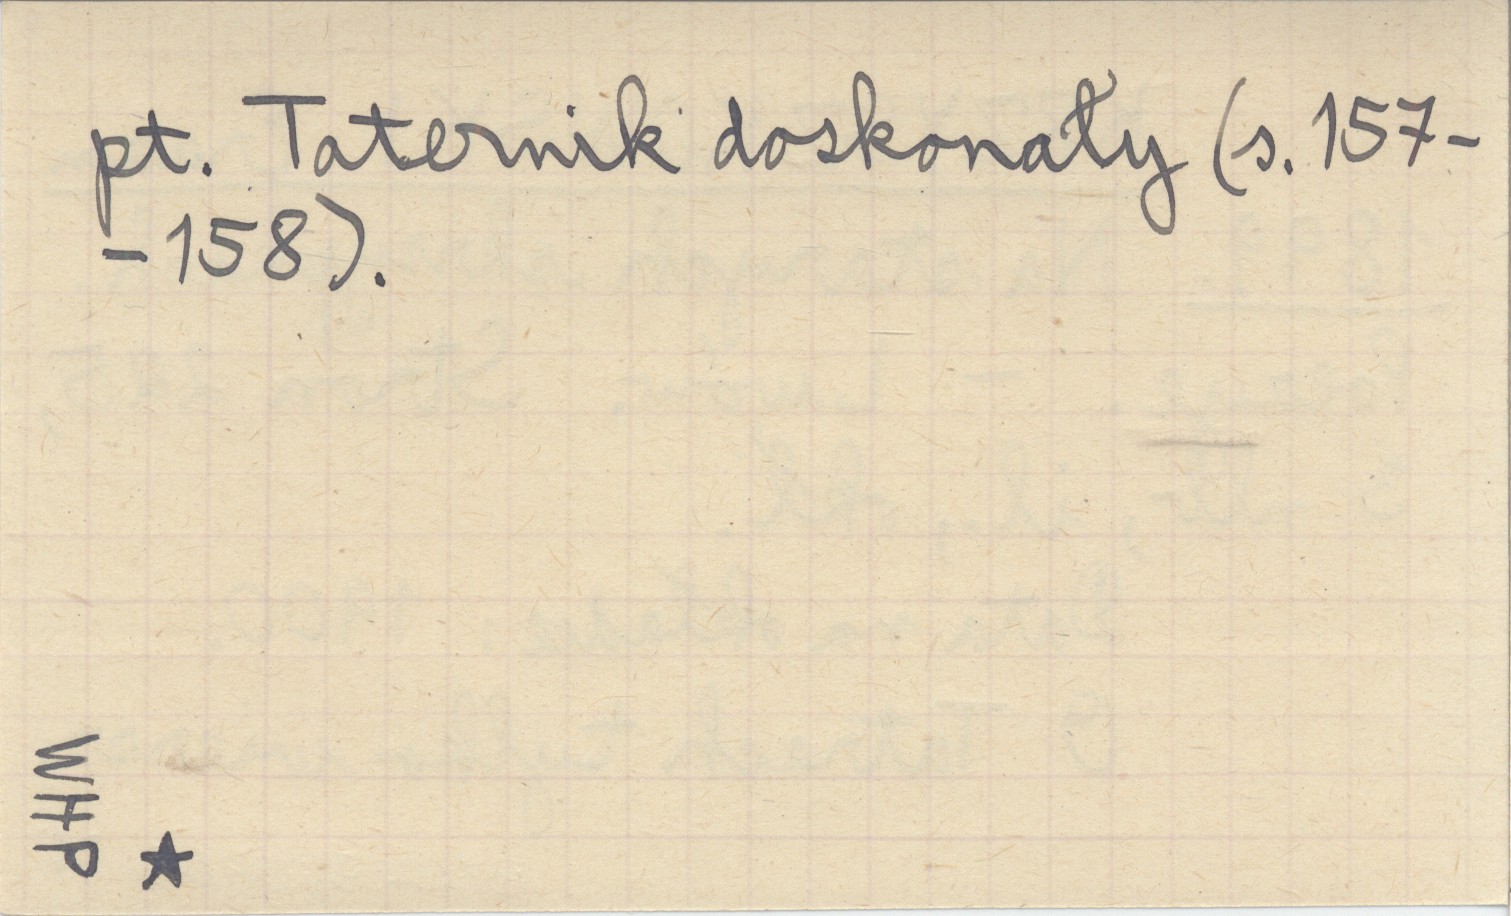 pt. Taternik doskonały (s. 157-
-158).
WHP